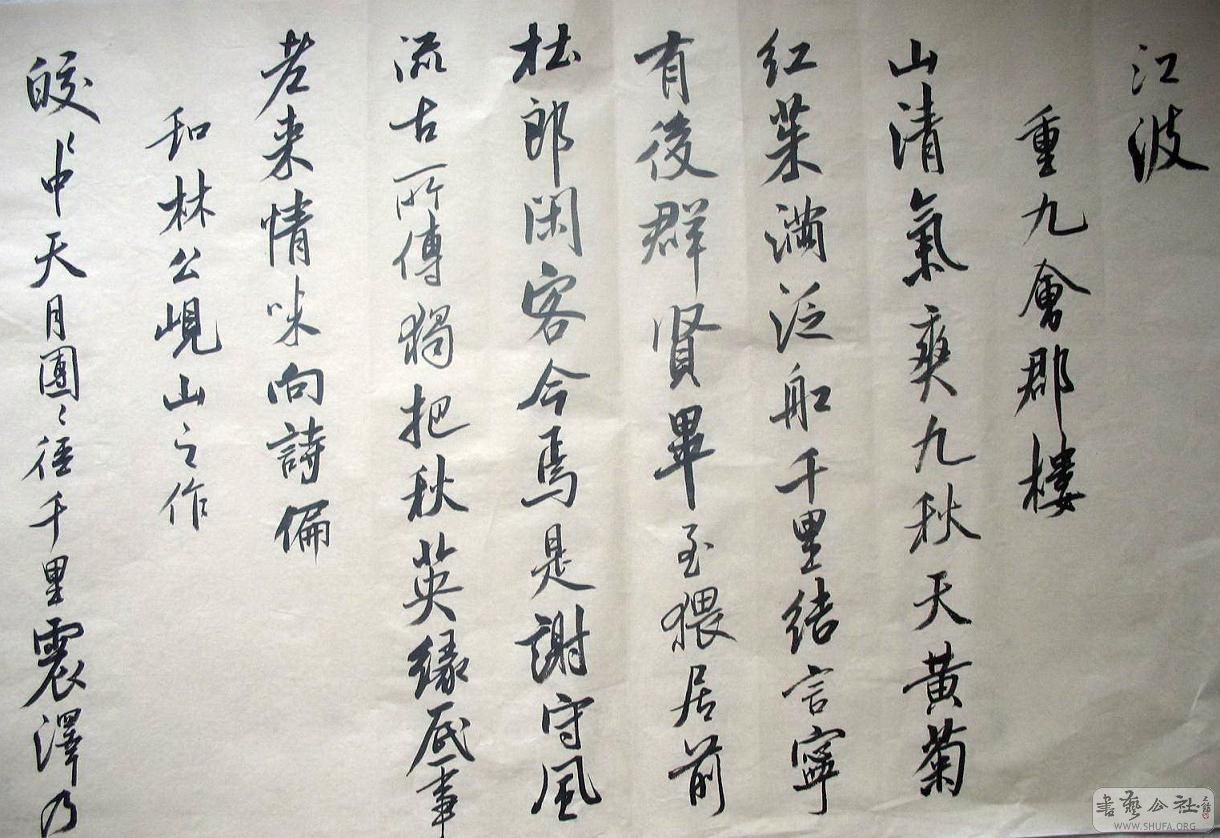 江波
重九會郡樓
山清氣爽九秋天黃菊
紅茱滿泛船千里結言寧
有後群賢畢至猥居前
杜郎閑客今焉是謝守風
流古所傳獨把秋英緣底事
老來情味向詩偏
和林公峴山之作
皎〻中天月團〻徑千里震澤乃
書藝公社
WWW.SHUFA.ORG